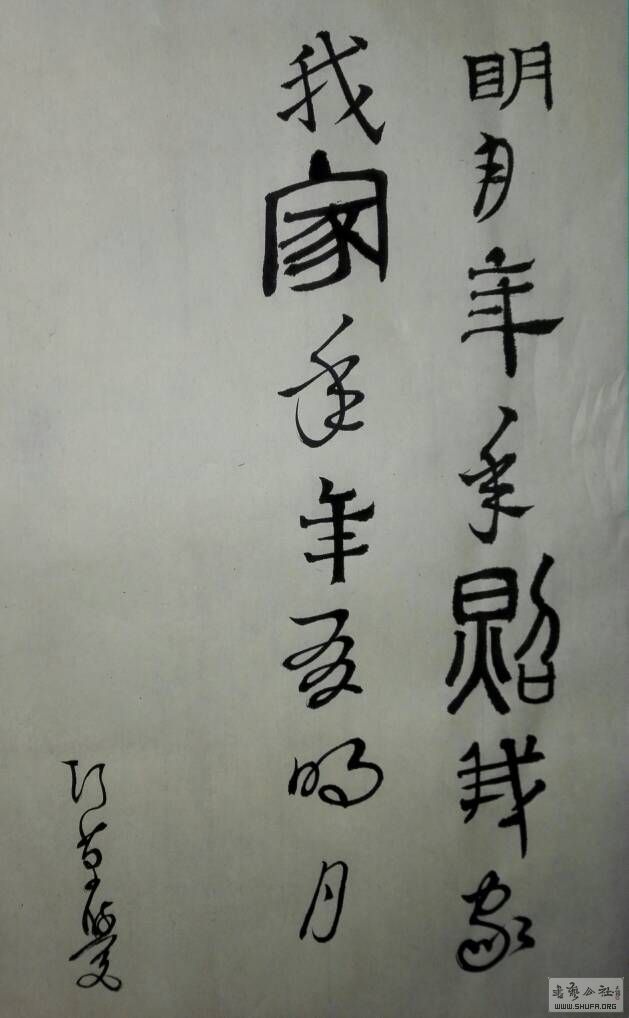 明月年年照我家
我家年年明月
行草
书艺公社
WWW.SHUFA.ORG